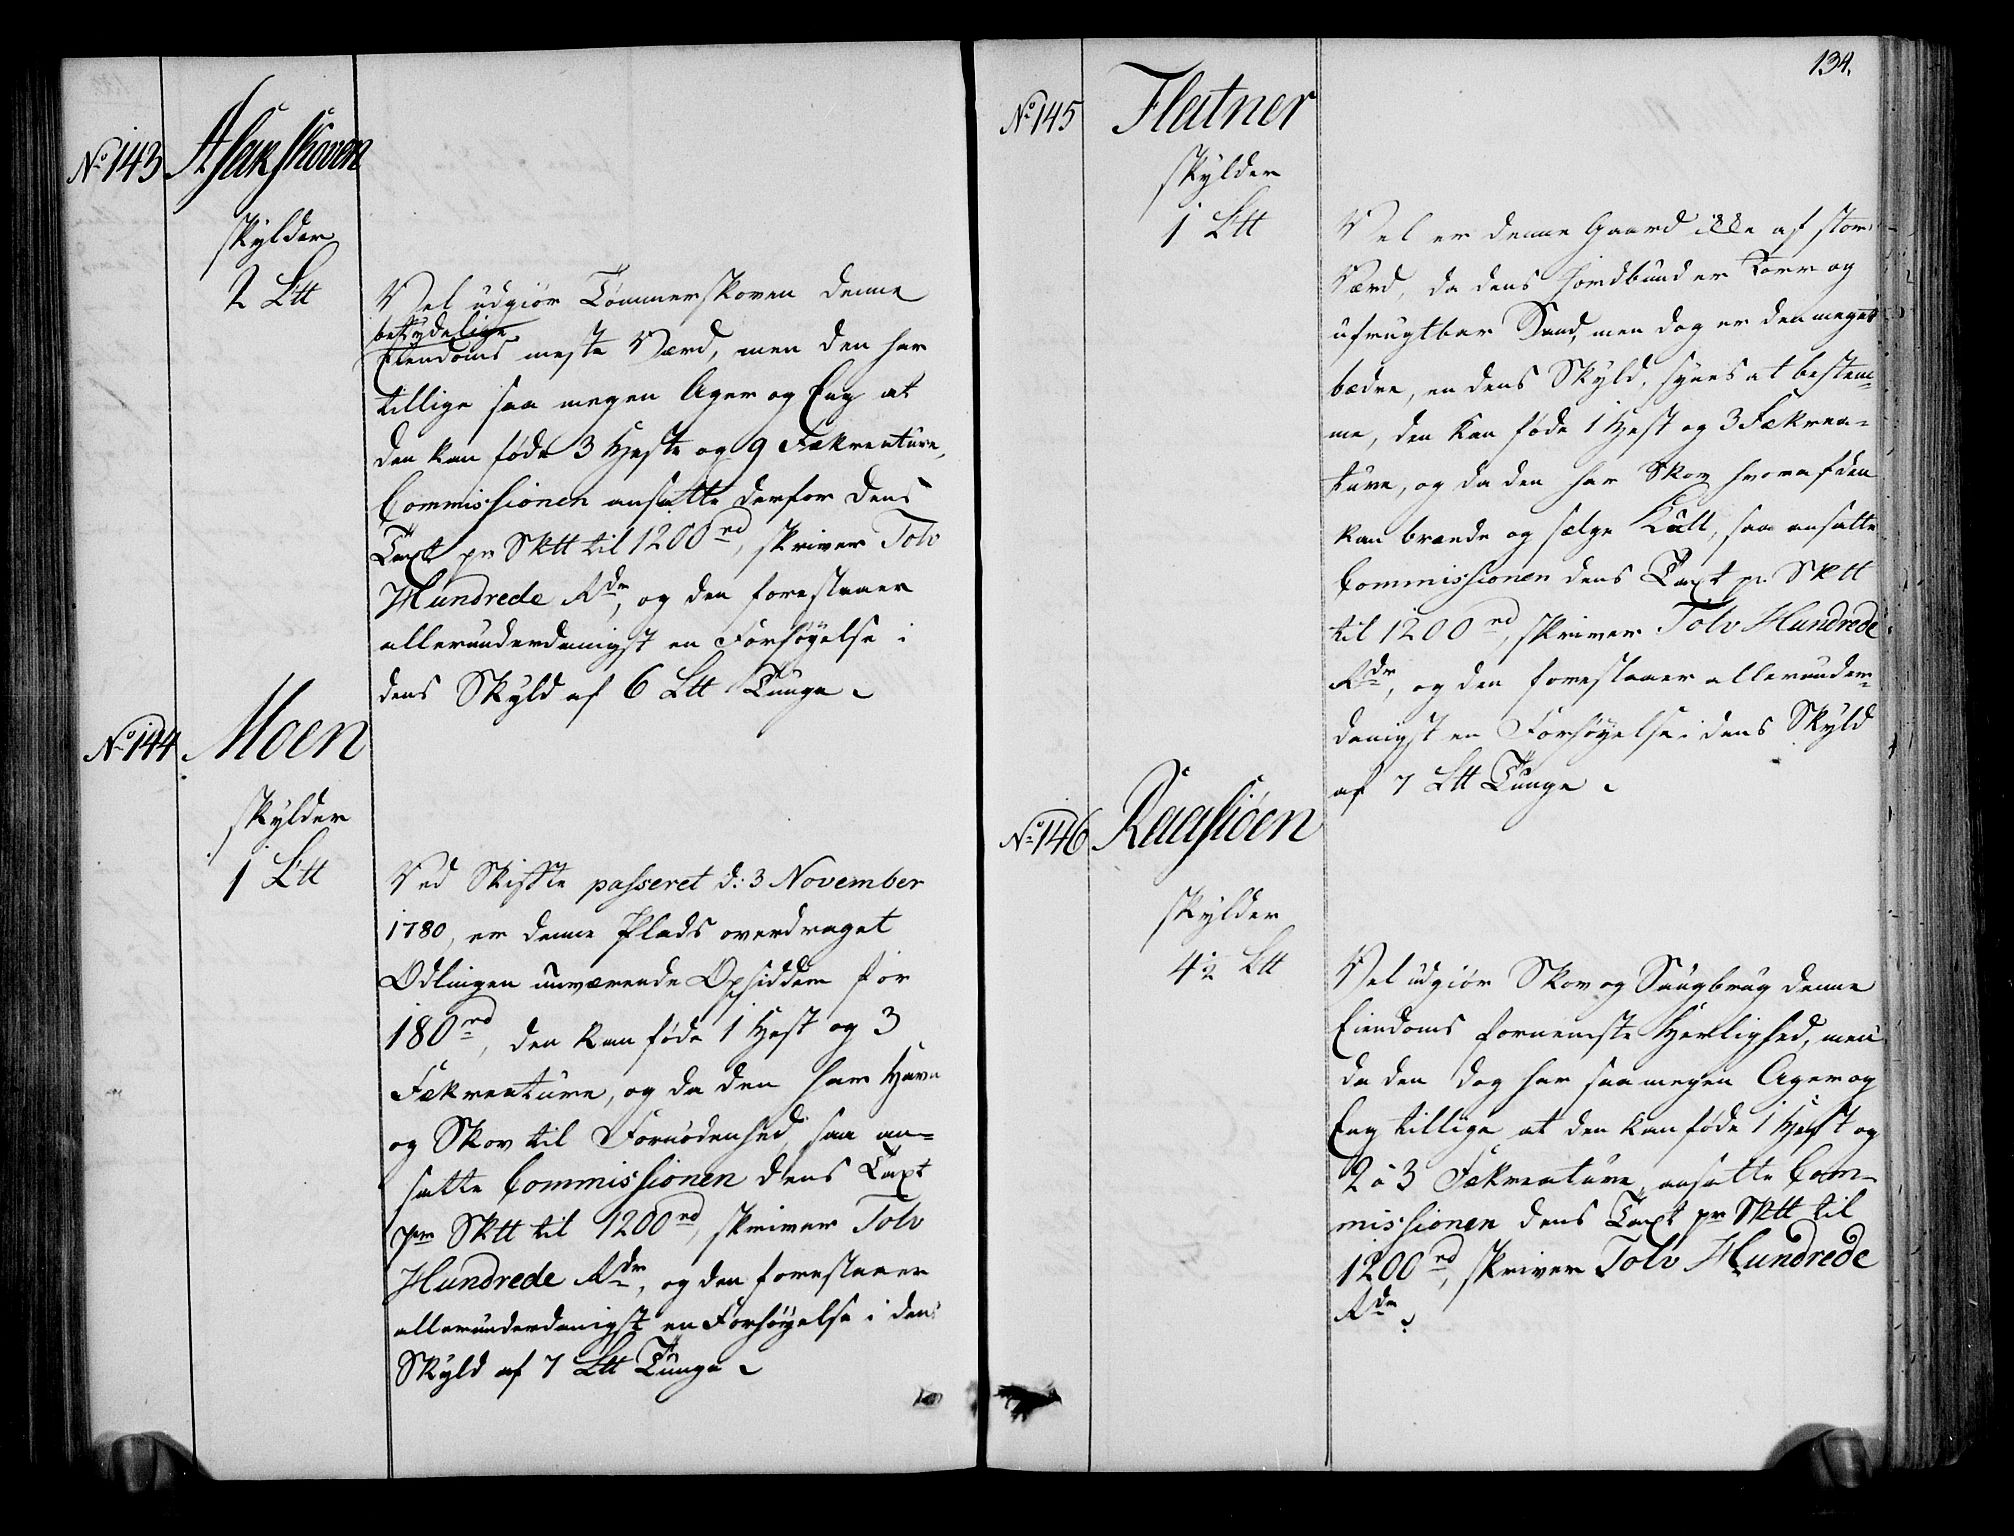 No 143
Aslakskoven
skylder
2 Ltt
Vel udgiør Tømmerskoven denne
betydelige
Eiendoms meste Værd, men den har
tillige saa megen Ager og Eng at
den kan føde 3 Heste og 9 Fækreature,
Commissionen ansatte derfor dens
Taxt pr Sktt til 1200 rd, skriver Tolv
Hundrede Rdr, og den forestaaer
allerunderdanigst en Forhøyelse i
dens Skyld af 6 Ltt Tunge
No 144
Moen
skylder
1 Ltt
Ved Skifte passeret d: 3 November
1780, er denne Plads overdraget
Odlingen nuværende Opsidder for
180 rd, den kan føde 1 Hest og 3
Fækreature, og da den har Havn
og Skov til Fornødenhed, saa an=
satte Commissionen dens Taxt
pr Sktt til 1200 rd, skriver Tolv
Hundrede Rdr, og den forestaaer
allerunderdanigst en Forhøyelse i dens
Skyld af 7 Ltt Tunge
134.
No 145
Flatner
skylder
1 Ltt
Vel er denne Gaard ikke af stor
Værd, da dens Jordbund er tør og
ufrugtbar Sand, men dog er den meget
bædre, en dens Skyld, synes at bestem=
me, den kan føde 1 Hest og 3 Fækrea=
ture, og da den har Skov hvoraf den
kan brænde og sælge Kull, saa ansatte
Commissionen dens Taxt pr Sktt
til 1200 rd, skriver Tolv Hundrede
Rdr, og den forestaaer allerunder=
danigst en Forhøyelse i dens Skyld
af 7 Ltt Tunge
No 146
Raasiøen
skylder
4½ Ltt
Vel udgiør Skov og Saugbrug denne
Eiendoms fornemste Herlighed, men
da den dog har saa megen Ager og
Eng tillige at den kan føde 1 Hest og
2 à 3 Fækreature, ansatte Com=
missionen dens Taxt pr Sktt til
1200 rd, skriver Tolv Hundrede
Rdr